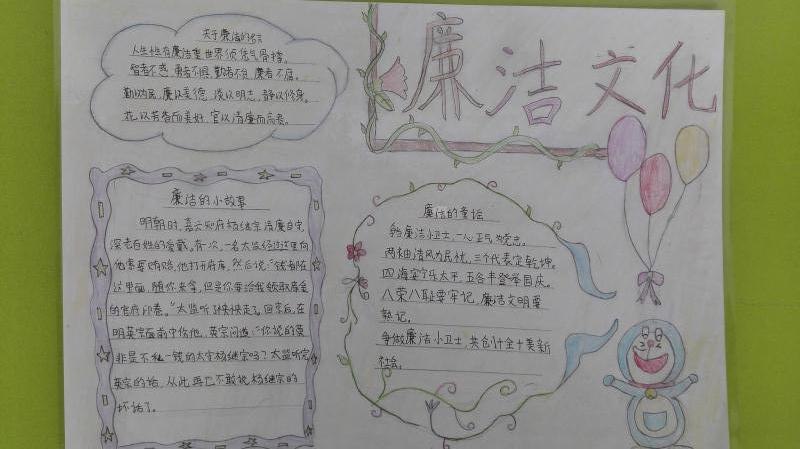 廉洁文化
关于廉洁的名言
人生性有廉洁重世界须凭气骨撑。
智者不惑,勇者不惧,勤者不贫,廉者不腐。
勤以为民,廉以养德,淡以明志,静以修身。
花以芳香而美好,官以清廉而高贵。
廉洁的小故事
明朝时,嘉兴知府杨继宗清廉自守,
深老百姓的爱戴。有一次,一名太监经过这里向
他索要贿赂,他打开府库,然后说:“钱都在
这里面,随你来拿,但是你要给我领取库金
的官府印卷。”太监听了怏怏走了,回京后,在
明英宗面前中伤他,英宗问道:“你说的莫
非是不私一钱的太守杨继宗吗?太监听完
英宗的话,从此再也不敢说杨继宗的
坏话了。
廉洁的童谣
争当廉洁小卫士,一心正气为党志。
两袖清风为民忧,三个代表定乾坤。
四海安宁乐太平,五谷丰登举国庆。
八荣八耻要牢记,廉洁文明要
熟记。
争做廉洁小卫士,共创十全十美新
社会。